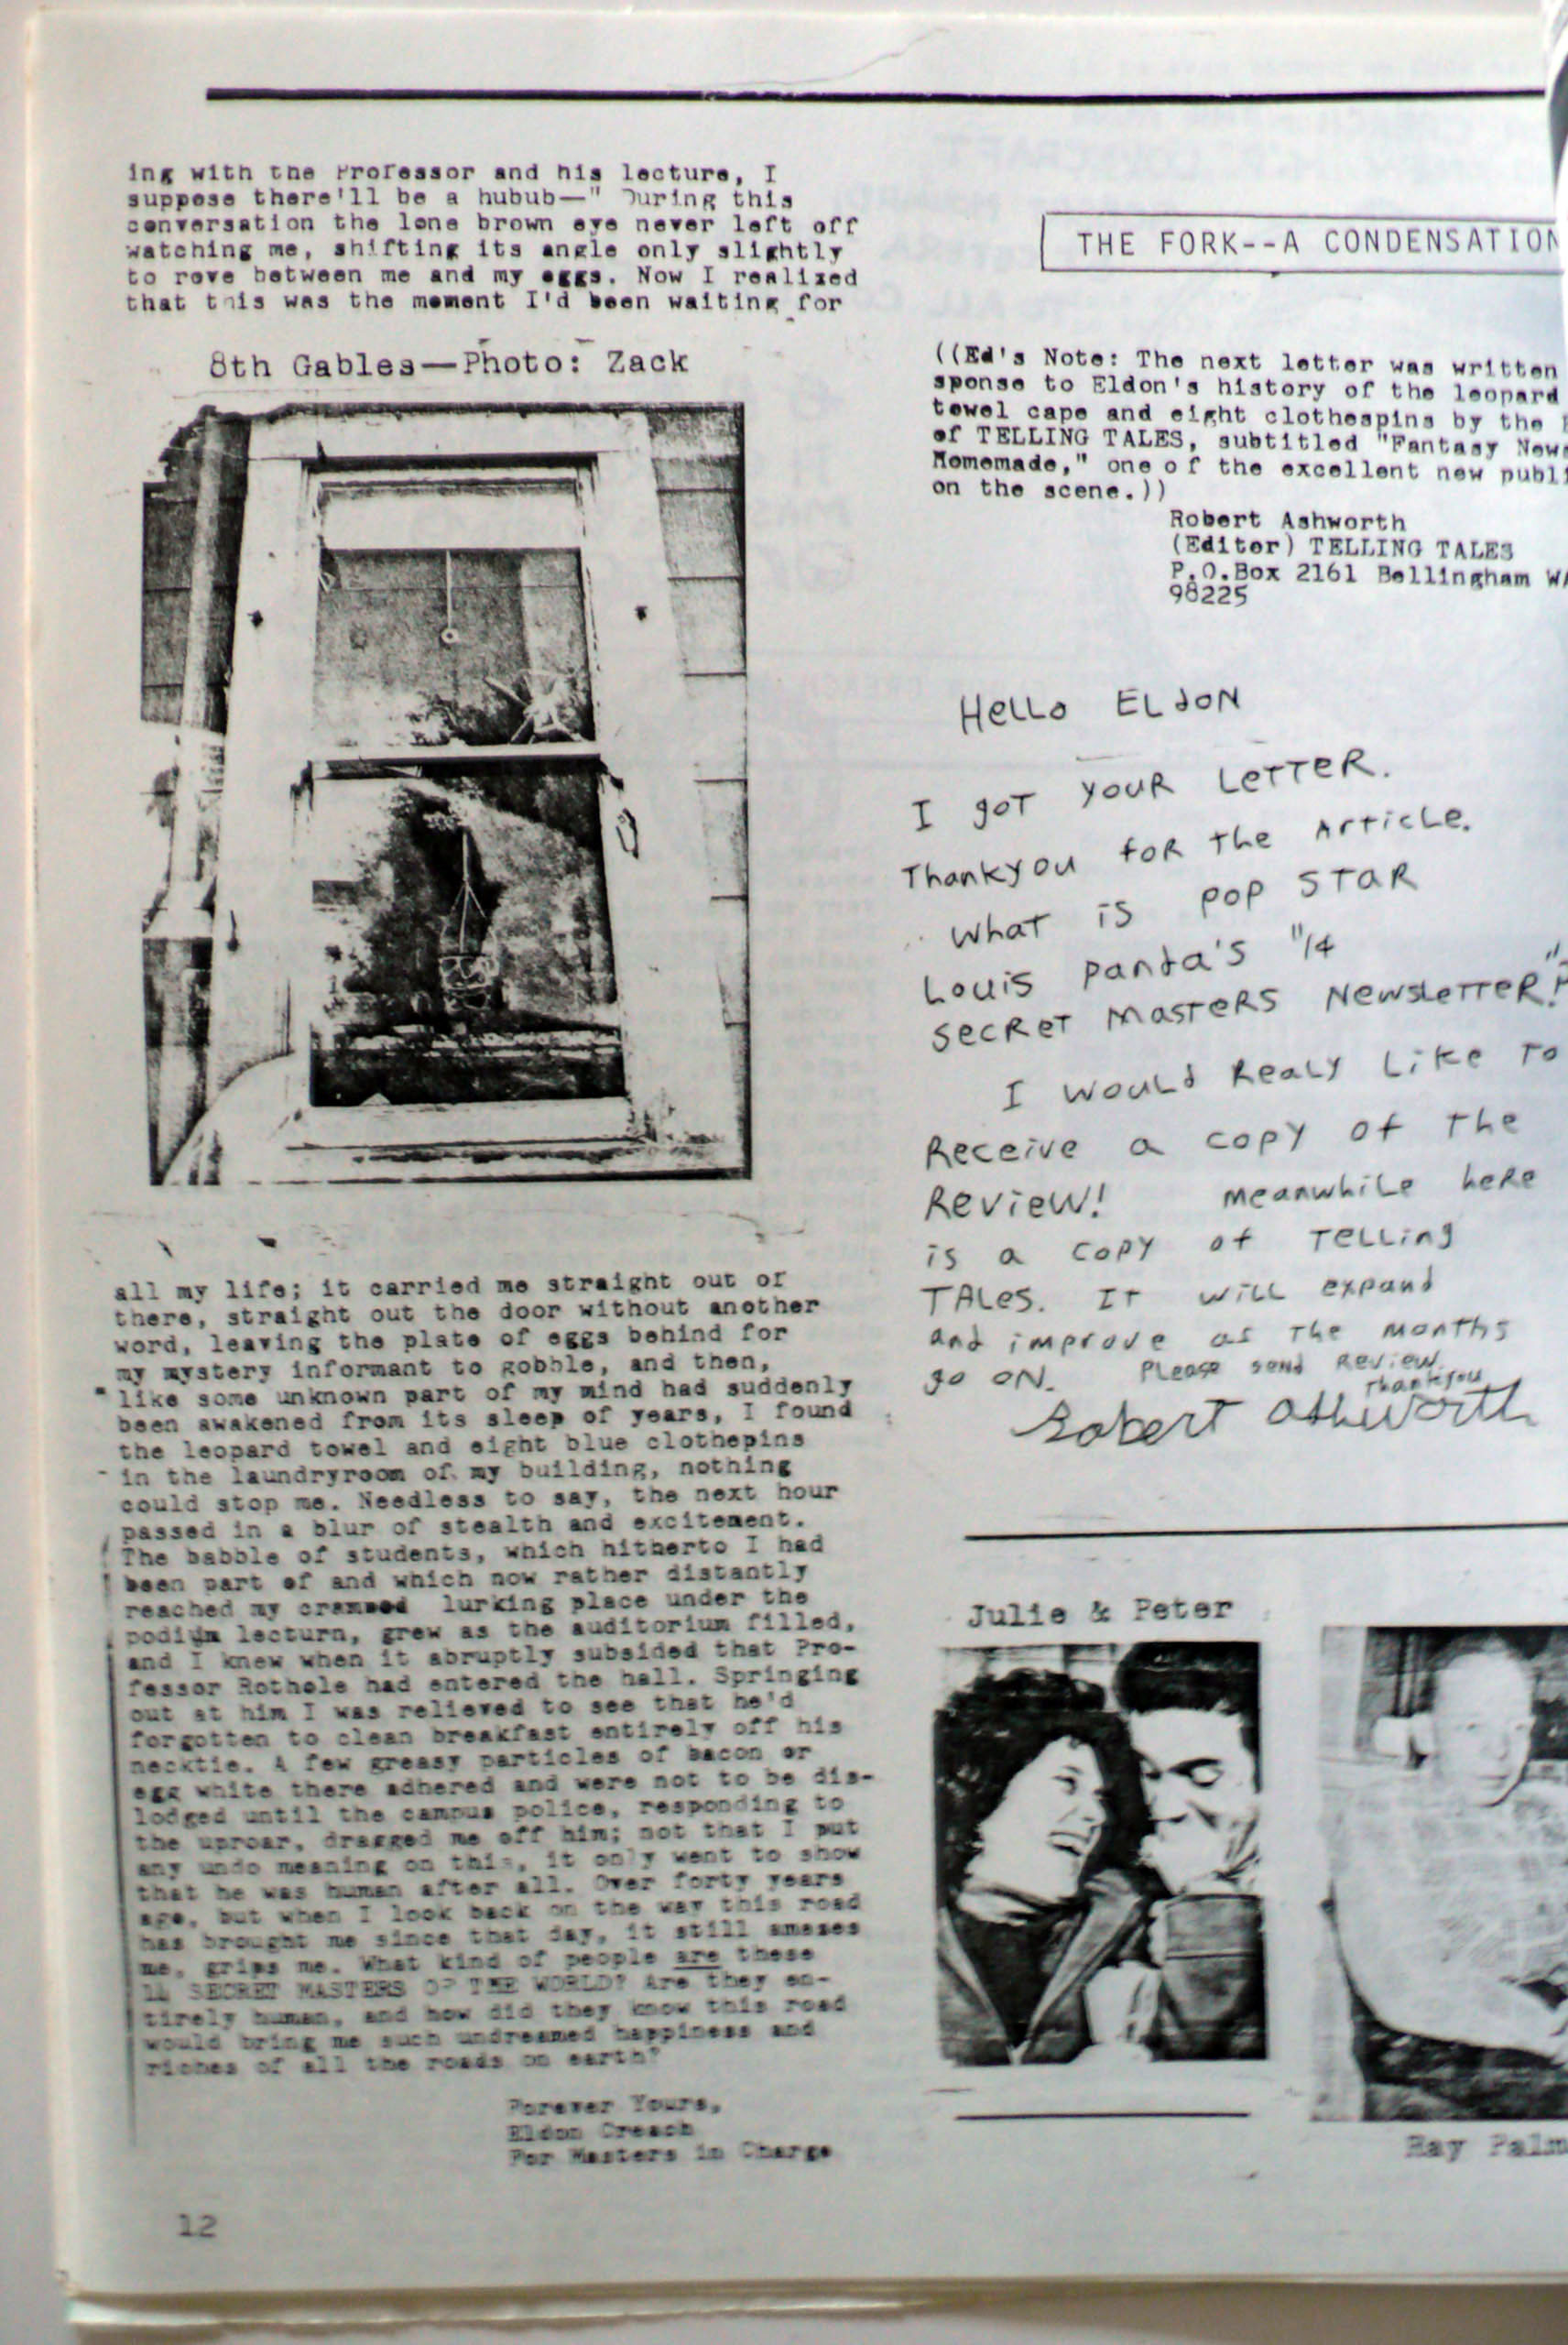 ing with the Professor and his lecture, I
suppose there'll be a hubub—" During this
conversation the lone brown eye never left off
watching me, shifting its angle only slightly
to rove between me and my eggs. Now I realized
that this was the moment I'd been waiting for
8th Gables—Photo: Zack
all my life; it carried me straight out of
there, straight out the door without another
word, leaving the plate of eggs behind for
my mystery informant to gobble, and then,
like some unknown part of my mind had suddenly
been awakened from its sleep of years, I found
the leopard towel and eight blue clothepins
in the laundryroom of my building, nothing
could stop me. Needless to say, the next hour
passed in a blur of stealth and excitement.
The babble of students, which hitherto I had
been part of and which now rather distantly
reached my crammed lurking place under the
podium lecturn, grew as the auditorium filled,
and I knew when it abruptly subsided that Pro-
fessor Rothole had entered the hall. Springing
out at him I was relieved to see that he'd
forgotten to clean breakfast entirely off his
necktie. A few greasy particles of bacon or
egg white there adhered and were not to be dis-
lodged until the campus police, responding to
the uproar, dragged me off him; not that I put
any undo meaning on this, it only went to show
that he was human after all. Over forty years
ago, but when I look back on the way this road
has brought me since that day, it still amazes
me, grips me. What kind of people are these
14 SECRET MASTERS OF THE WORLD? Are they en-
tirely human, and how did they know this road
would bring me such undreamed happiness and
riches of all the roads on earth?
Forever Yours,
Eldon Creach
For Masters in Charge
12
THE FORK--A CONDENSATION
((Ed's Note: The next letter was written
sponse to Eldon's history of the leopard
towel cape and eight clothespins by the
of TELLING TALES, subtitled "Fantasy News
Homemade," one of the excellent new publi
on the scene.))
Robert Ashworth
(Editor) TELLING TALES
P.O.Box 2161 Bellingham WA
98225
Hello Eldon
I got your letter.
Thankyou for the Article.
What is pop star
Louis panda's "14
Secret Masters Newsletter?"
I would Realy like to
Receive a copy of the
Review! meanwhile here
is a copy of Telling
Tales. It will expand
and improve as the months
go on. Please send Review.
Thankyou
Robert Ashworth
Julie & Peter
Ray Palm